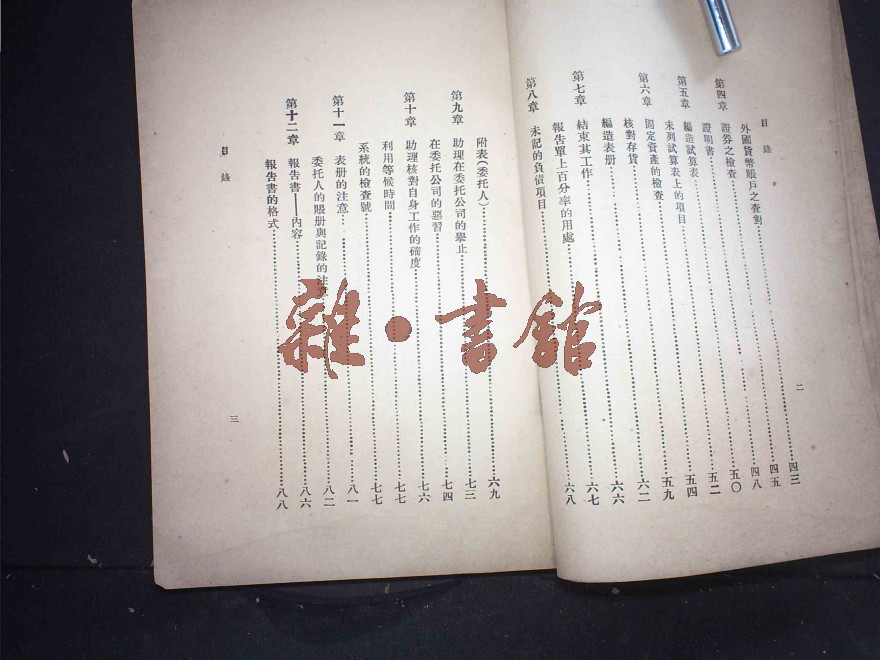 目錄
外國貨幣賬戶之查對……四三
第四章 證券之檢查……四五
證明書……四八
第五章 編造試算表……五〇
未列試算表上的項目……五二
第六章 固定資產的檢查……五四
核對存貨……五九
編造表册……六二
第七章 結束其工作……六六
報告單上百分率的用處……六七
第八章 未記的負債項目……六八
二
附表(委托人)……六九
第九章 助理在委托公司的舉止……七三
在委托公司的惡習……七四
第十章 助理核對自身工作的確度……七六
利用等候時間……七七
系統的檢查號……七七
第十一章 表册的注意……八一
委托人的賬册與記錄的注意……八二
第十二章 報告書——內容……八六
報告書的格式……八八
目錄
三
雜·書館